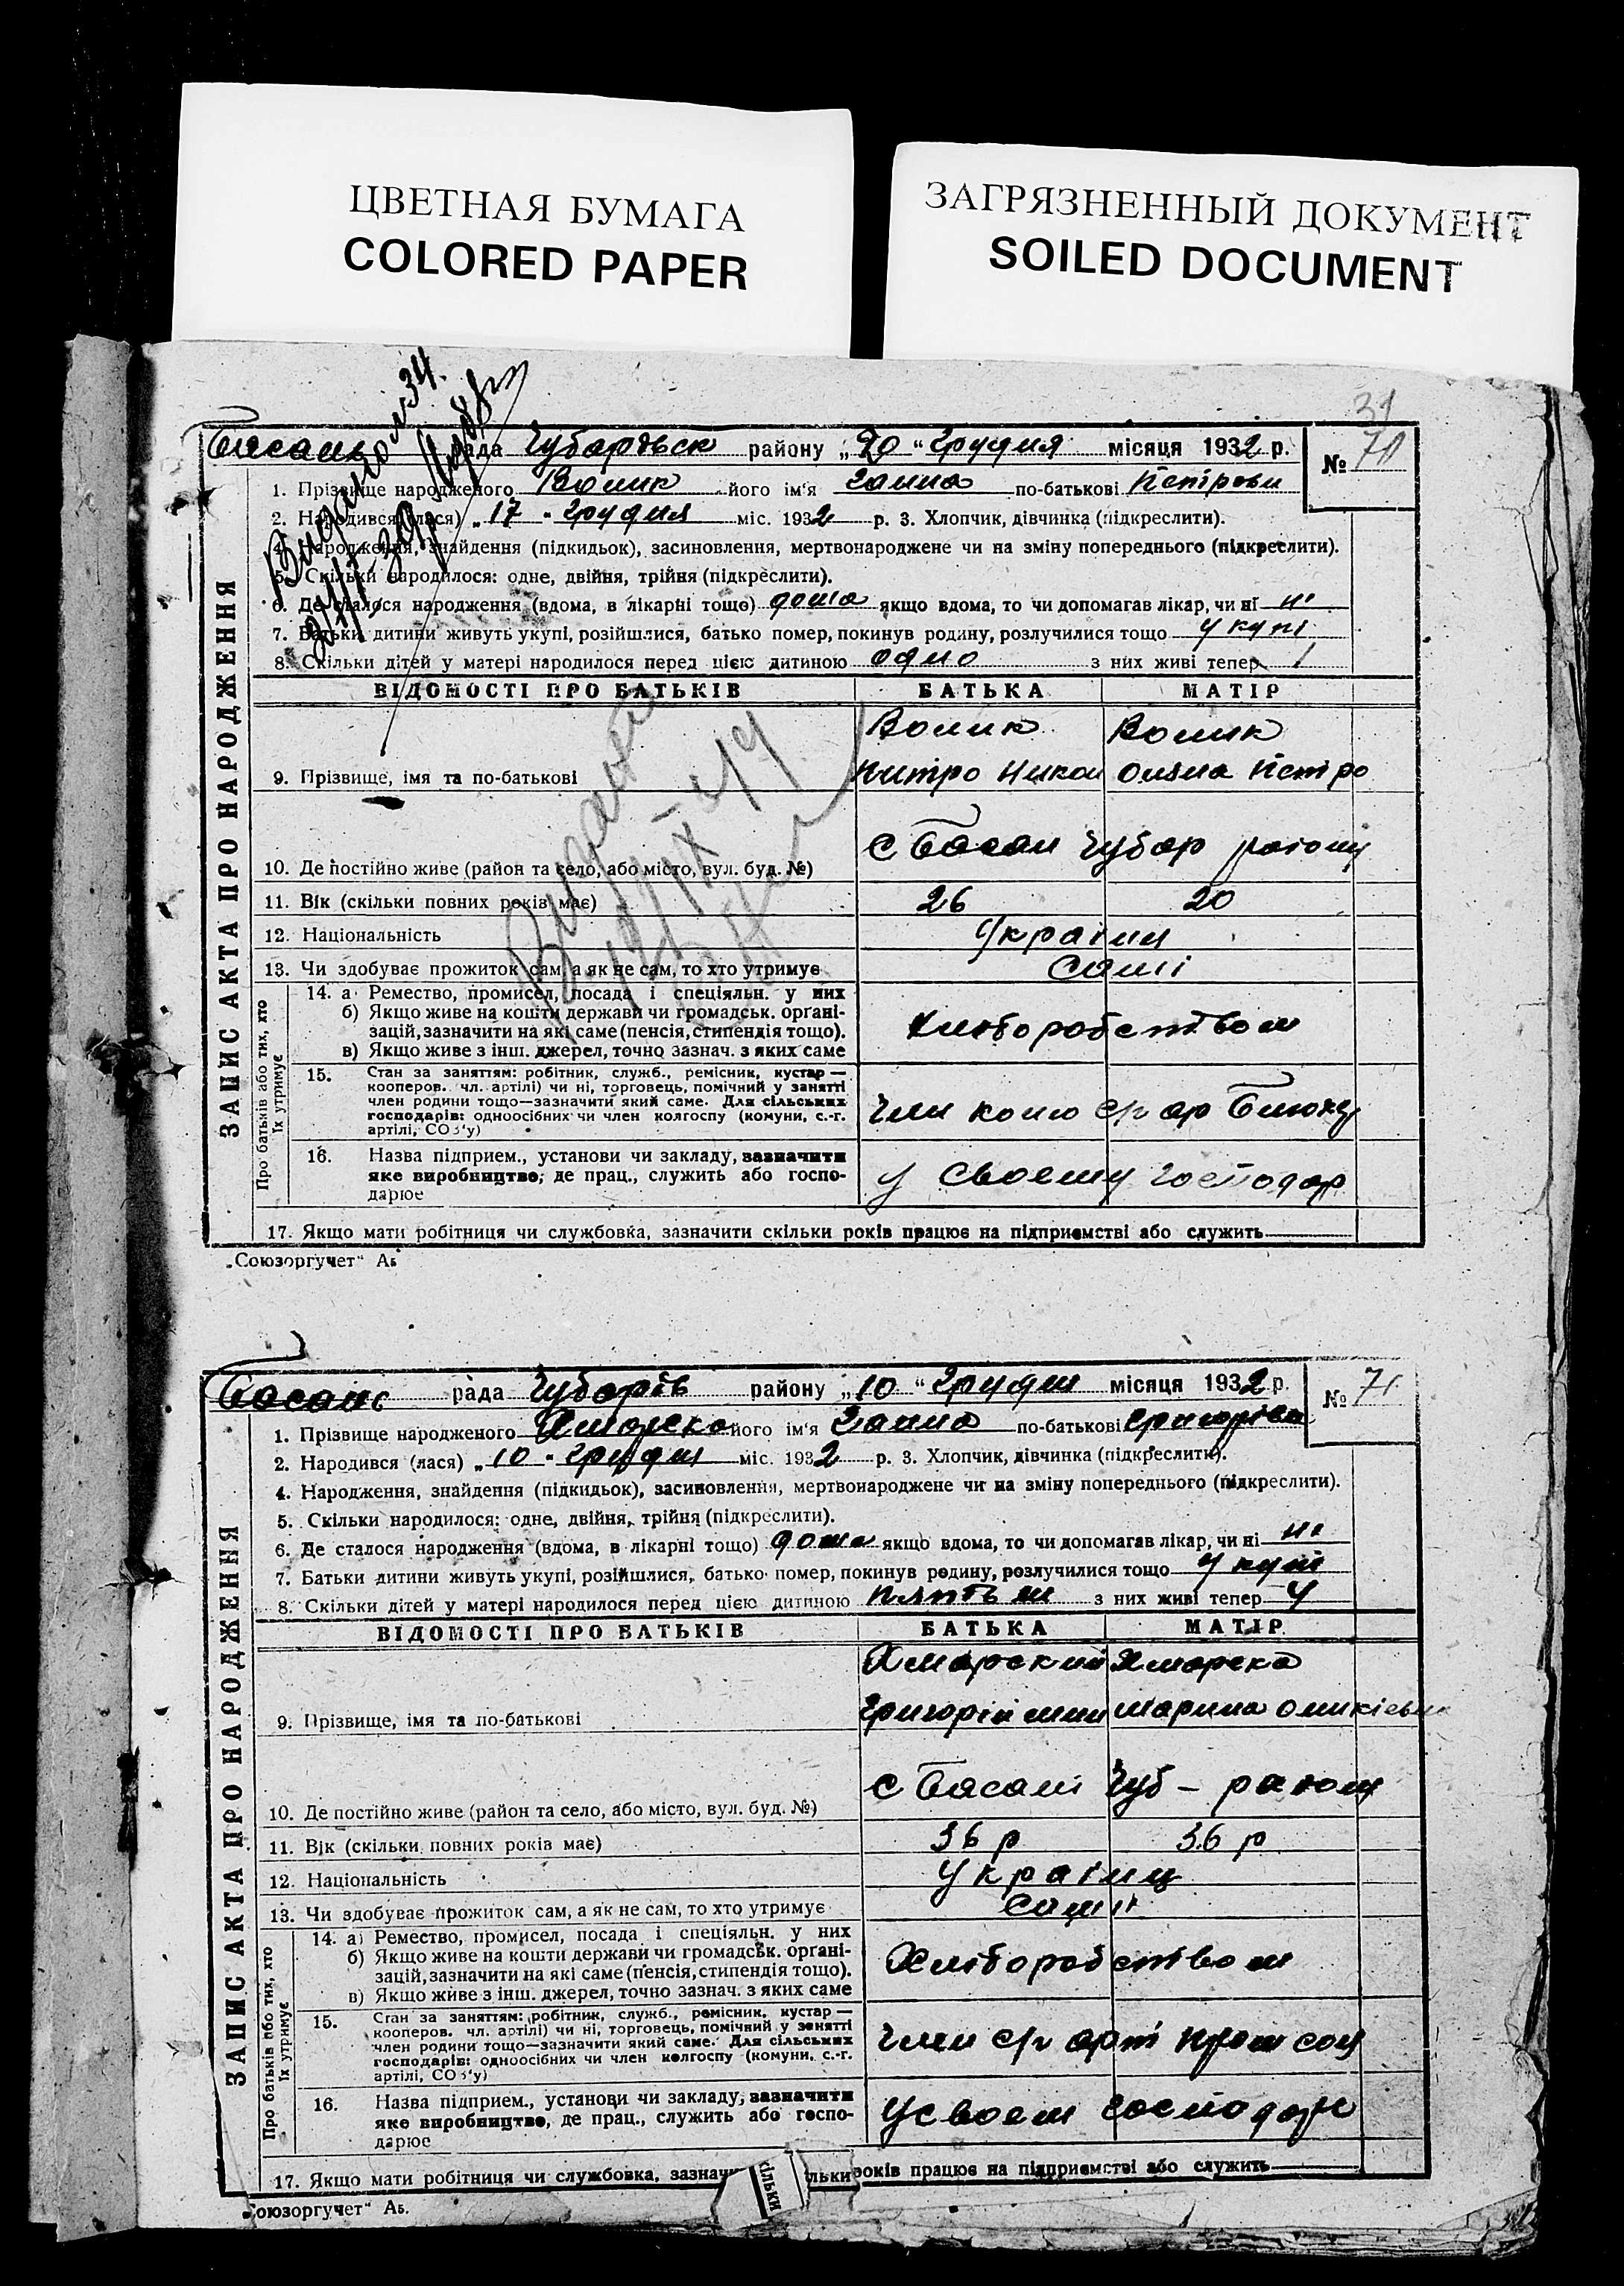 ЦВЕТНАЯ БУМАГА
COLORED PAPER
ЗАГРЯЗНЕННЫЙ ДОКУМЕНТ
SOILED DOCUMENT
31
рада Чубарівськ району „20“ Грудня місяця 1932 р. № 70
1. Прізвище народженого Волик його ім'я Ганна по-батькові Петровн
2. Народився (лася) „17“ Грудня міс. 1932 р. 3. Хлопчик, дівчинка (підкреслити).
4. Народження, знайдення (підкидьок), засиновлення, мертвонароджене чи на зміну попереднього (підкреслити).
5. Скільки народилося: одне, двійня, трійня (підкреслити).
6. Де сталося народження (вдома, в лікарні тощо) дома якщо вдома, то чи допомагав лікар, чи ні ні
7. Батьки дитини живуть укупі, розійшлися, батько помер, покинув родину, розлучилися тощо укупі
8. Скільки дітей у матері народилося перед цією дитиною одно з них живі тепер 1
ЗАПИС АКТА ПРО НАРОДЖЕННЯ
ВІДОМОСТІ ПРО БАТЬКІВ БАТЬКА МАТІР
Волик Волик
9. Прізвище, імя та по-батькові
Петро
10. Де постійно живе (район та село, або місто, вул. буд. №) с Басан Чубар району
11. Вік (скільки повних років має) 26 20
12. Національність Україн
13. Чи здобуває прожиток сам, а як не сам, то хто утримує самі
Про батьків або тих, хто їх утримує
14. а Ремество, промисел, посада і спеціяльн. у них
б) Якщо живе на кошти держави чи громадськ. органі-
зацій, зазначити на які саме (пенсія, стипендія тощо).
в) Якщо живе з інш. джерел, точно зазнач. з яких саме
Хліборобством
15. Стан за заняттям: робітник, служб., ремісник, кустар —
кооперов. чл. артілі) чи ні, торговець, помічний у занятті
член родини тощо—зазначити який саме. Для сільських
господарів: одноосібних чи член колгоспу (комуни, с.-г.
артілі, СОЗ'у)
член с/г ар
16. Назва підприєм., установи чи закладу, зазначити
яке виробництво; де прац., служить або госпо-
дарює
у своему господар
17. Якщо мати робітниця чи службовка, зазначити скільки років працює на підприємстві або служить
„Союзоргучет“ Аб
Басанс рада Чубарів району „10“ Грудня місяця 1932 р. № 71
1. Прізвище народженого Хмарска його ім'я Ганна по-батькові Григорівн
2. Народився (лася) „10“ Грудня міс. 1932 р. 3. Хлопчик, дівчинка (підкреслити).
4. Народження, знайдення (підкидьок), засиновлення, мертвонароджене чи на зміну попереднього (підкреслити).
5. Скільки народилося: одне, двійня, трійня (підкреслити).
6. Де сталося народження (вдома, в лікарні тощо) дома якщо вдома, то чи допомагав лікар, чи ні ні
7. Батьки дитини живуть укупі, розійшлися, батько помер, покинув родину, розлучилися тощо укупі
8. Скільки дітей у матері народилося перед цією дитиною з них живі тепер 4
ЗАПИС АКТА ПРО НАРОДЖЕННЯ
ВІДОМОСТІ ПРО БАТЬКІВ БАТЬКА МАТІР
Хмарский Хмарска
9. Прізвище, імя та по-батькові Григорій Марина
10. Де постійно живе (район та село, або місто, вул. буд. №) с Басані Чуб – району
11. Вік (скільки повних років має) 36 р 36 р
12. Національність Українц
13. Чи здобуває прожиток сам, а як не сам, то хто утримує самі
Про батьків або тих, хто їх утримує
14. а) Ремество, промисел, посада і спеціяльн. у них
б) Якщо живе на кошти держави чи громадськ. органі-
зацій, зазначити на які саме (пенсія, стипендія тощо).
в) Якщо живе з інш. джерел, точно зазнач. з яких саме
Хліборобством
15. Стан за заняттям: робітник, служб., ремісник, кустар —
кооперов. чл. артілі) чи ні, торговець, помічний у занятті
член родини тощо—зазначити який саме. Для сільських
господарів: одноосібних чи член колгоспу (комуни, с.-г.
артілі, СОЗ'у)
член с/г арті
16. Назва підприєм., установи чи закладу, зазначити
яке виробництво, де прац., служить або госпо-
дарює
у своем господар
17. Якщо мати робітниця чи службовка, зазначи років працює на підприємстві або служить
кільки
„Союзоргучет“ Аб.